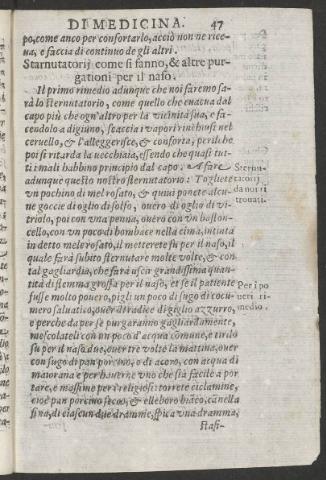 DI MEDICINA. 47
po, come anco per confortarlo, acciò non ne rice-
ua, e faccia di continuo de gli altri.
Starnutatorij come si fanno, & altre pur-
gationi per il naso.
Il primo rimedio adunque che noi faremo sa-
rà lo sternutatorio, come quello che euacua dal
capo più che ogn'altro per la vicinità sua, e fa-
cendolo a digiuno, scaccia i vapori rinchiusi nel
ceruello, & l'alleggerisce, & conforta; perilche
poi si ritarda la vecchiaia, essendo che quasi tut-
ti i mali habbino principio dal capo. A fare
adunque questo nostro sternutatorio: Togliete
vn pochino di mel rosato, & quiui ponete alcu-
ne goccie di oglio di solfo, ouero di oglio di vi-
triolo, poi con vna penna, ouero con vn baston-
cello, con vn poco di bombace nella cima, intinta
in detto mele rosato, il metterete su per il naso, il
quale farà subito sternutare molte volte, & con
tal gagliardia, che farà uscir grandissima quan-
tità di flemma grossa per il naso, et se il patiente
fusse molto pouero, pigli un poco di sugo di cocu-
mero saluatico, ouer di radice di giglio azzurro,
e perche da per se purgaranno gagliardamente,
mescolateli con un poco d'acqua comune, e tirilo
su per il naso due, ouer tre volte la mattina, ouer
con sugo di pan porcino, e di acono, con acqua di
maiorana e per hauerne vno che sia facile a por
tare, e massime per i religiosi: torrete ciclamine,
cioè pan porcino secco, & elleboro biāco, cānella
fina, di ciascun due dramme, spica vna dramma,
stafi-
Sternu-
tatorij
da noi ri
trouati.
Per i po
ueri ri-
medio.